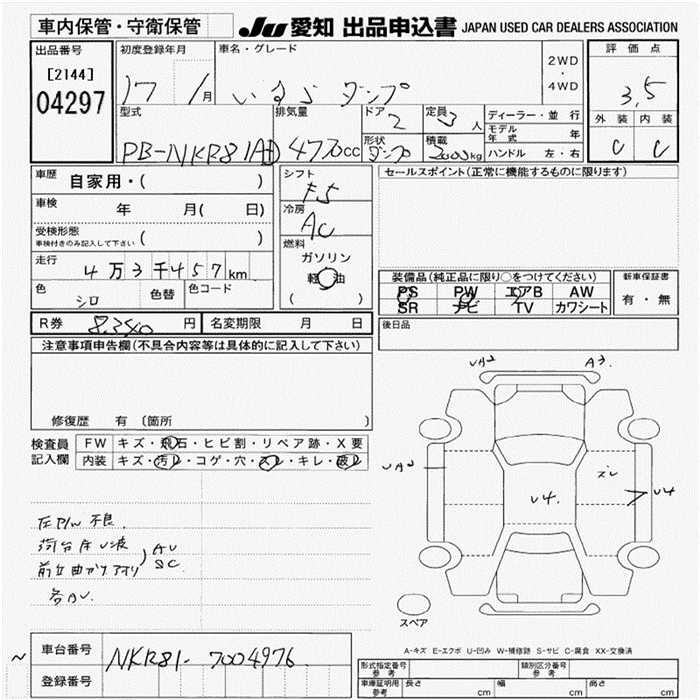 車内保管・守衛保管
JU 愛知 出品申込書 JAPAN USED CAR DEALERS ASSOCIATION
出品番号 初度登録年月 車名・グレード 2WD・4WD 評価点
[2144]
04297
17 1月 いすゞ ダンプ 3.5
型式 排気量 ドア 2 定員 3人 ディーラー・並行 外装 内装
モデル年式 年
PB-NKR81AD 4770cc 形状 ダンプ 積載 3000kg ハンドル 左・右 C C
車歴 自家用・( ) シフト F5 セールスポイント(正常に機能するものに限ります)
車検 年 月( 日) 冷房 AC
受検形態 ( )
車検付きのみ記入して下さい
燃料 ガソリン
走行 4万3千457km 軽油
( )
装備品(純正品に限り○をつけてください) 新車保証書
色 シロ 色替 色コード PS PW エアB AW 有・無
SR ナビ TV カワシート
R券 8,340円 名変期限 月 日 後日品
注意事項申告欄(不具合内容等は具体的に記入して下さい)
修復歴 有 〔箇所 〕
検査員 FW キズ・飛石・ヒビ割・リペア跡・X要
記入欄 内装 キズ・汚レ・コゲ・穴・スレ・キレ・破レ
UA2 A3
UA2 U4 ズレ U4
左P/W不良
荷台床U波
AU
SC
前立曲がり アオリ
各AU.
スペア
A-キズ E-エクボ U-凹み W-補修跡 S-サビ C-腐食 XX-交換済
~ 車台番号 NKR81-7004976
登録番号
形式指定番号 参考 類別区分番号 参考
車庫証明用 参考 長さ cm 幅 cm 高さ cm